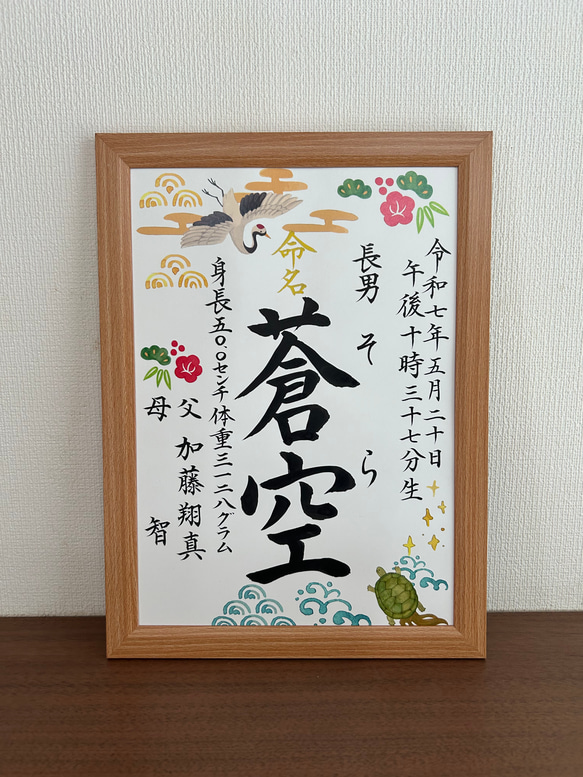 令和七年五月二十日
午後十時三十七分生
長男 そら
命名
蒼空
身長五〇.〇センチ 体重三一二八グラム
父 加藤翔真
母 智